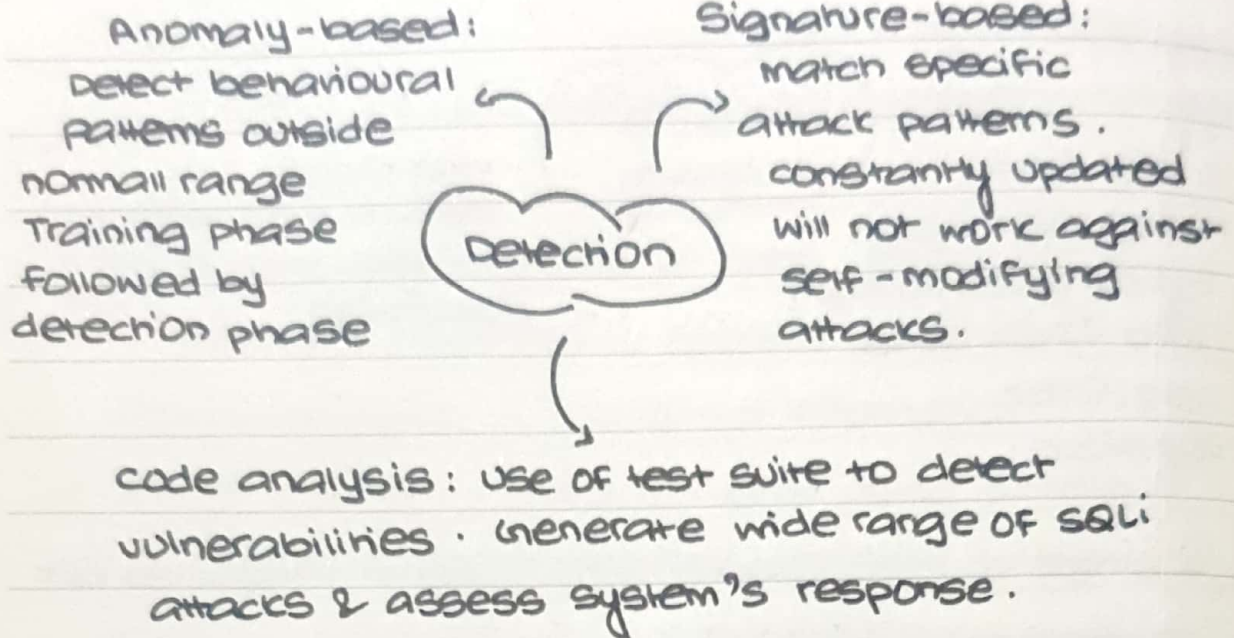 Anomaly-based:
Detect behavioural
patterns outside
normall range
Training phase
followed by
detection phase
Signature-based:
match specific
attack patterns.
constantly updated
will not work against
self-modifying
attacks.
Detection
code analysis: use of test suite to detect
vulnerabilities. Generate wide range of SQLi
attacks & assess system's response.